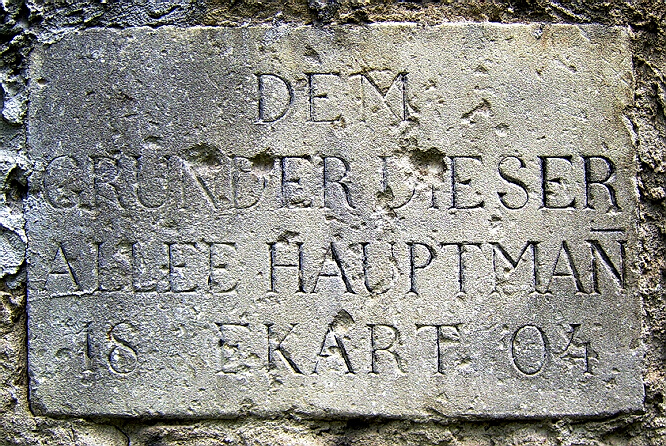 DEM
GRÜNDER DIESER
ALLEE HAUPTMAN̄
18 EKART 04